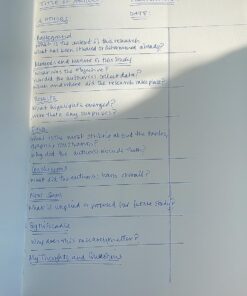 TITLE OF ARTICLE
AUTHORS
DATE:
Background
What is the context of this research?
What has been studied or determined already?
Nature of this Study
What was the objective?
How did the authors collect data?
When and where did the research take place?
Results
What highlights emerged?
Were there any surprises?
Data
What is the most striking about the tables,
graphs, illustrations?
Why did the authors include them?
Conclusions
What did the authors learn overall?
Next Steps
What is implied or proposed for future study?
Significance
Why does this research matter?
My Thoughts and Questions